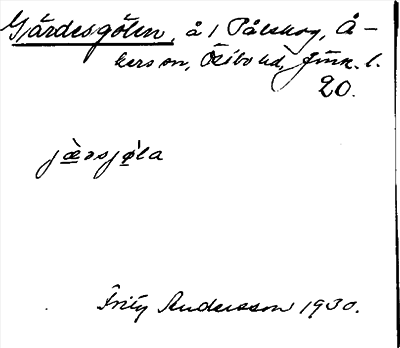 Gjärdesgölen, å 1 Pålskog, Å-
kers sn, Östbo hd, Jönk. l.
20.
jæ̀rsjø̀la
Fritz Andersson 1930.